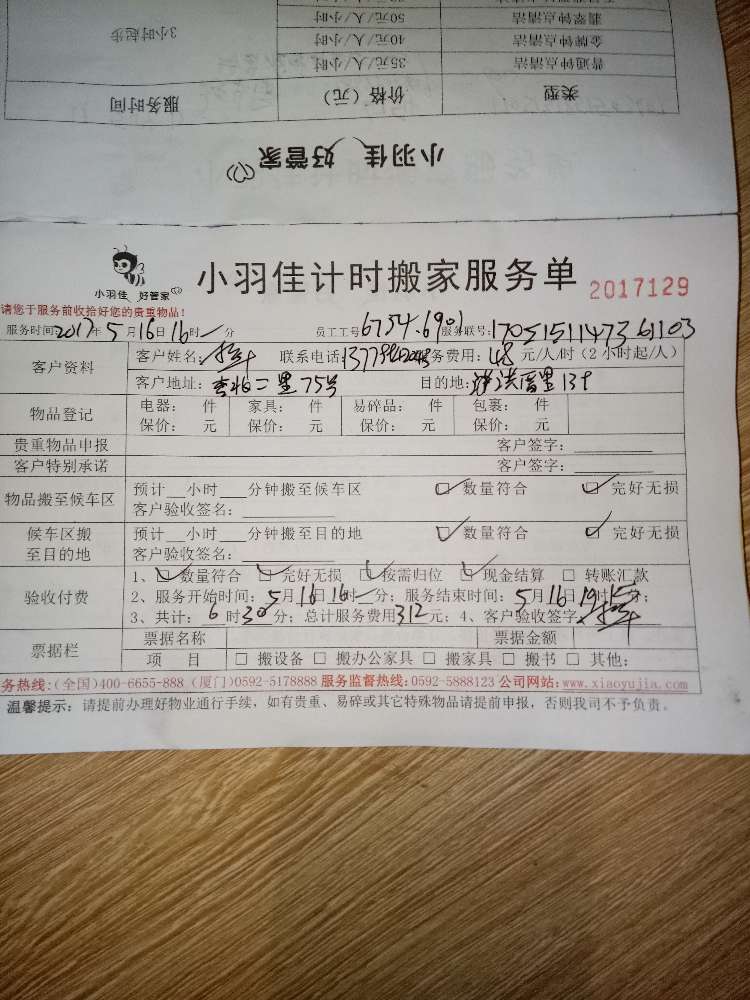 3小时起步
50元/人/小时
翡翠钟点清洁
40元/人/小时
金牌钟点清洁
35元/人/小时
普通钟点清洁
服务时间
价格（元）
类型
小羽佳 好管家
小羽佳 好管家
小羽佳计时搬家服务单 2017129
请您于服务前收拾好您的贵重物品！
服务时间2017年5月16日16时 分 员工工号6754.6901 服务联号:
客户资料 客户姓名: 联系电话: 务费用: 48 元/人/时（2小时起/人）
客户地址: 二里75号 目的地:
物品登记 电器: 件 家具: 件 易碎品: 件 包裹: 件
保价: 元 保价: 元 保价: 元 保价: 元
贵重物品申报 客户签字:
客户特别承诺 客户签字:
物品搬至候车区 预计__小时___分钟搬至候车区 □ 数量符合 □ 完好无损
客户验收签名:
候车区搬至目的地 预计__小时___分钟搬至目的地 □ 数量符合 □ 完好无损
客户验收签名:
验收付费 1、□ 数量符合 □ 完好无损 □ 按需归位 □ 现金结算 □ 转账汇款
2、服务开始时间: 5月16日16时 分; 服务结束时间: 5月16日19时15分;
3、共计: 6时30分; 总计服务费用312元; 4、客户验收签字
票据栏 票据名称 票据金额
项 目 □ 搬设备 □ 搬办公家具 □ 搬家具 □ 搬书 □ 其他:
务热线:(全国)400-6655-888 (厦门)0592-5178888 服务监督热线:0592-5888123 公司网站:www.xiaoyujia.com
温馨提示: 请提前办理好物业通行手续，如有贵重、易碎或其它特殊物品请提前申报，否则我司不予负责。